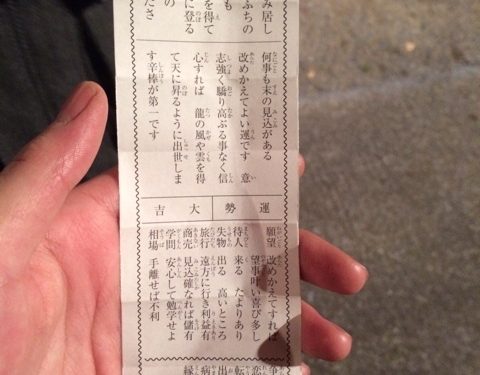 み居し
ふちの
も
を得て
に登る
の
ださ
何事も末の見込がある
改めかえてよい運です 意
志強く驕り高ぶる事なく信
心すれば 龍の風や雲を得
て天に昇るように出世しま
す辛棒が第一です
運勢 大吉
願望 改めかえてすれば
望事叶い喜び多し
待人 来る たよりあり
失物 出る 高いところ
旅行 遠方に行き利益有
商売 見込確なれば儲有
学問 安心して勉学せよ
相場 手離せば不利
争
恋
転
出
病
縁